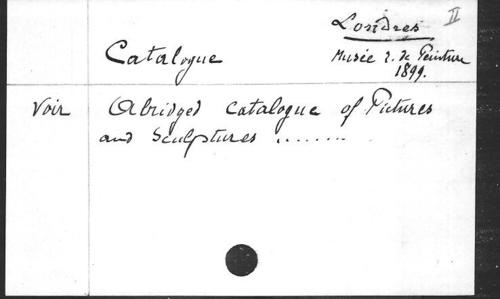 II
Londres
Catalogue
Musée r. de Peinture
1899.
Voir
Abridged catalogue of Pictures
and Sculptures ........